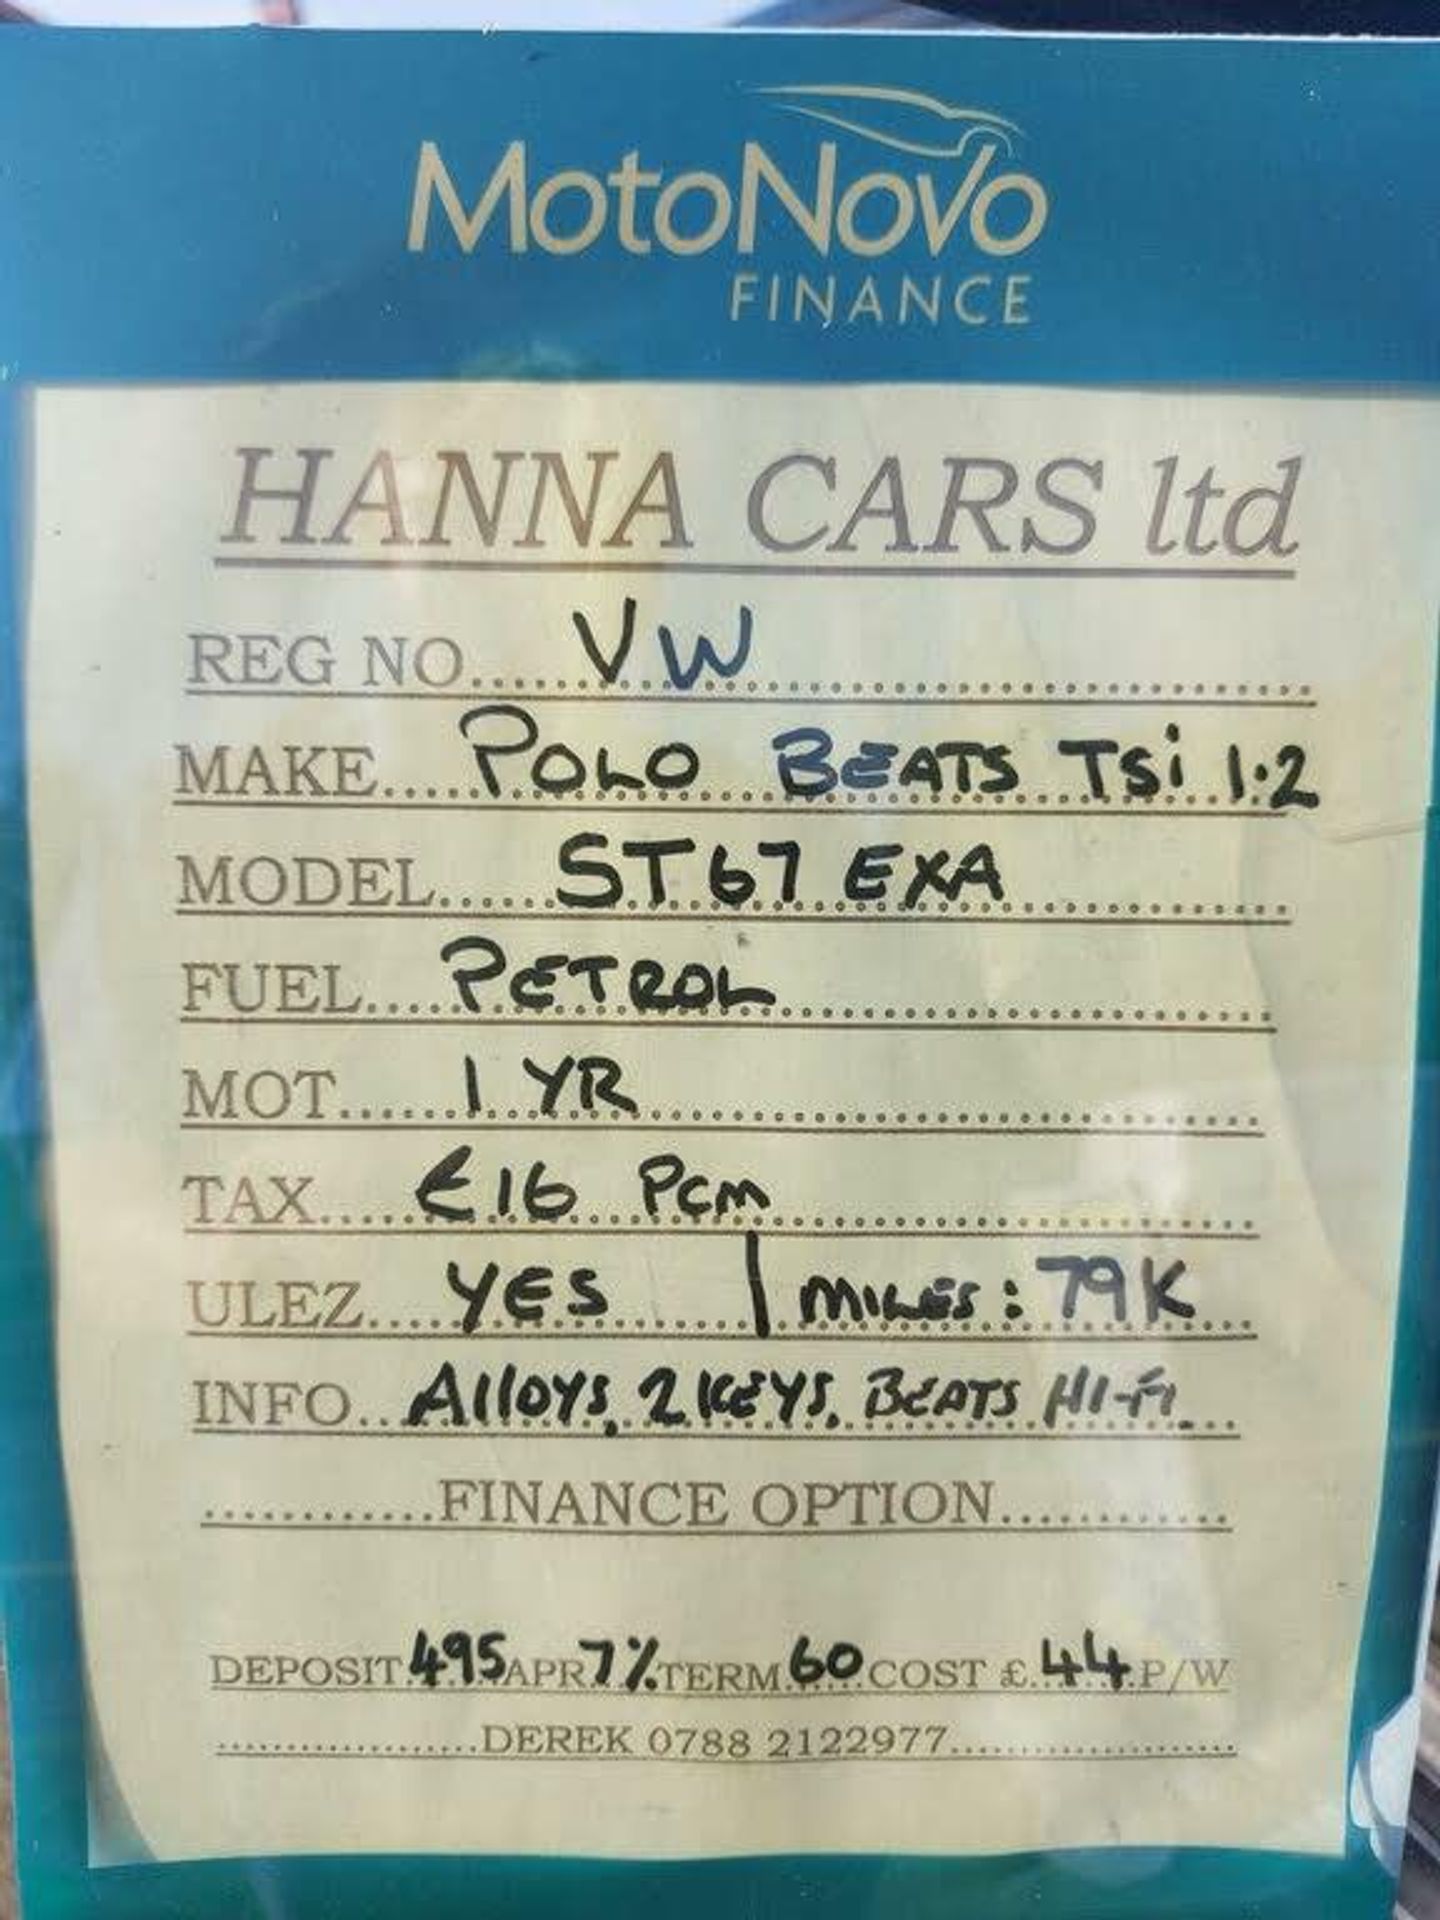 MotoNovo
FINANCE
HANNA CARS ltd
REG NO..... VW
MAKE..... POLO BEATS TSi 1.2
MODEL..... ST67 EXA
FUEL.... PETROL
MOT.... 1 YR
TAX.... £16 PCM
ULEZ.... YES | MILES: 79K
INFO... Alloys, 2 KEYS, BEATS HI-FI.
............FINANCE OPTION............
DEPOSIT 495 APR 7% TERM 60 COST £ 44 P/W
....................DEREK 0788 2122977......................